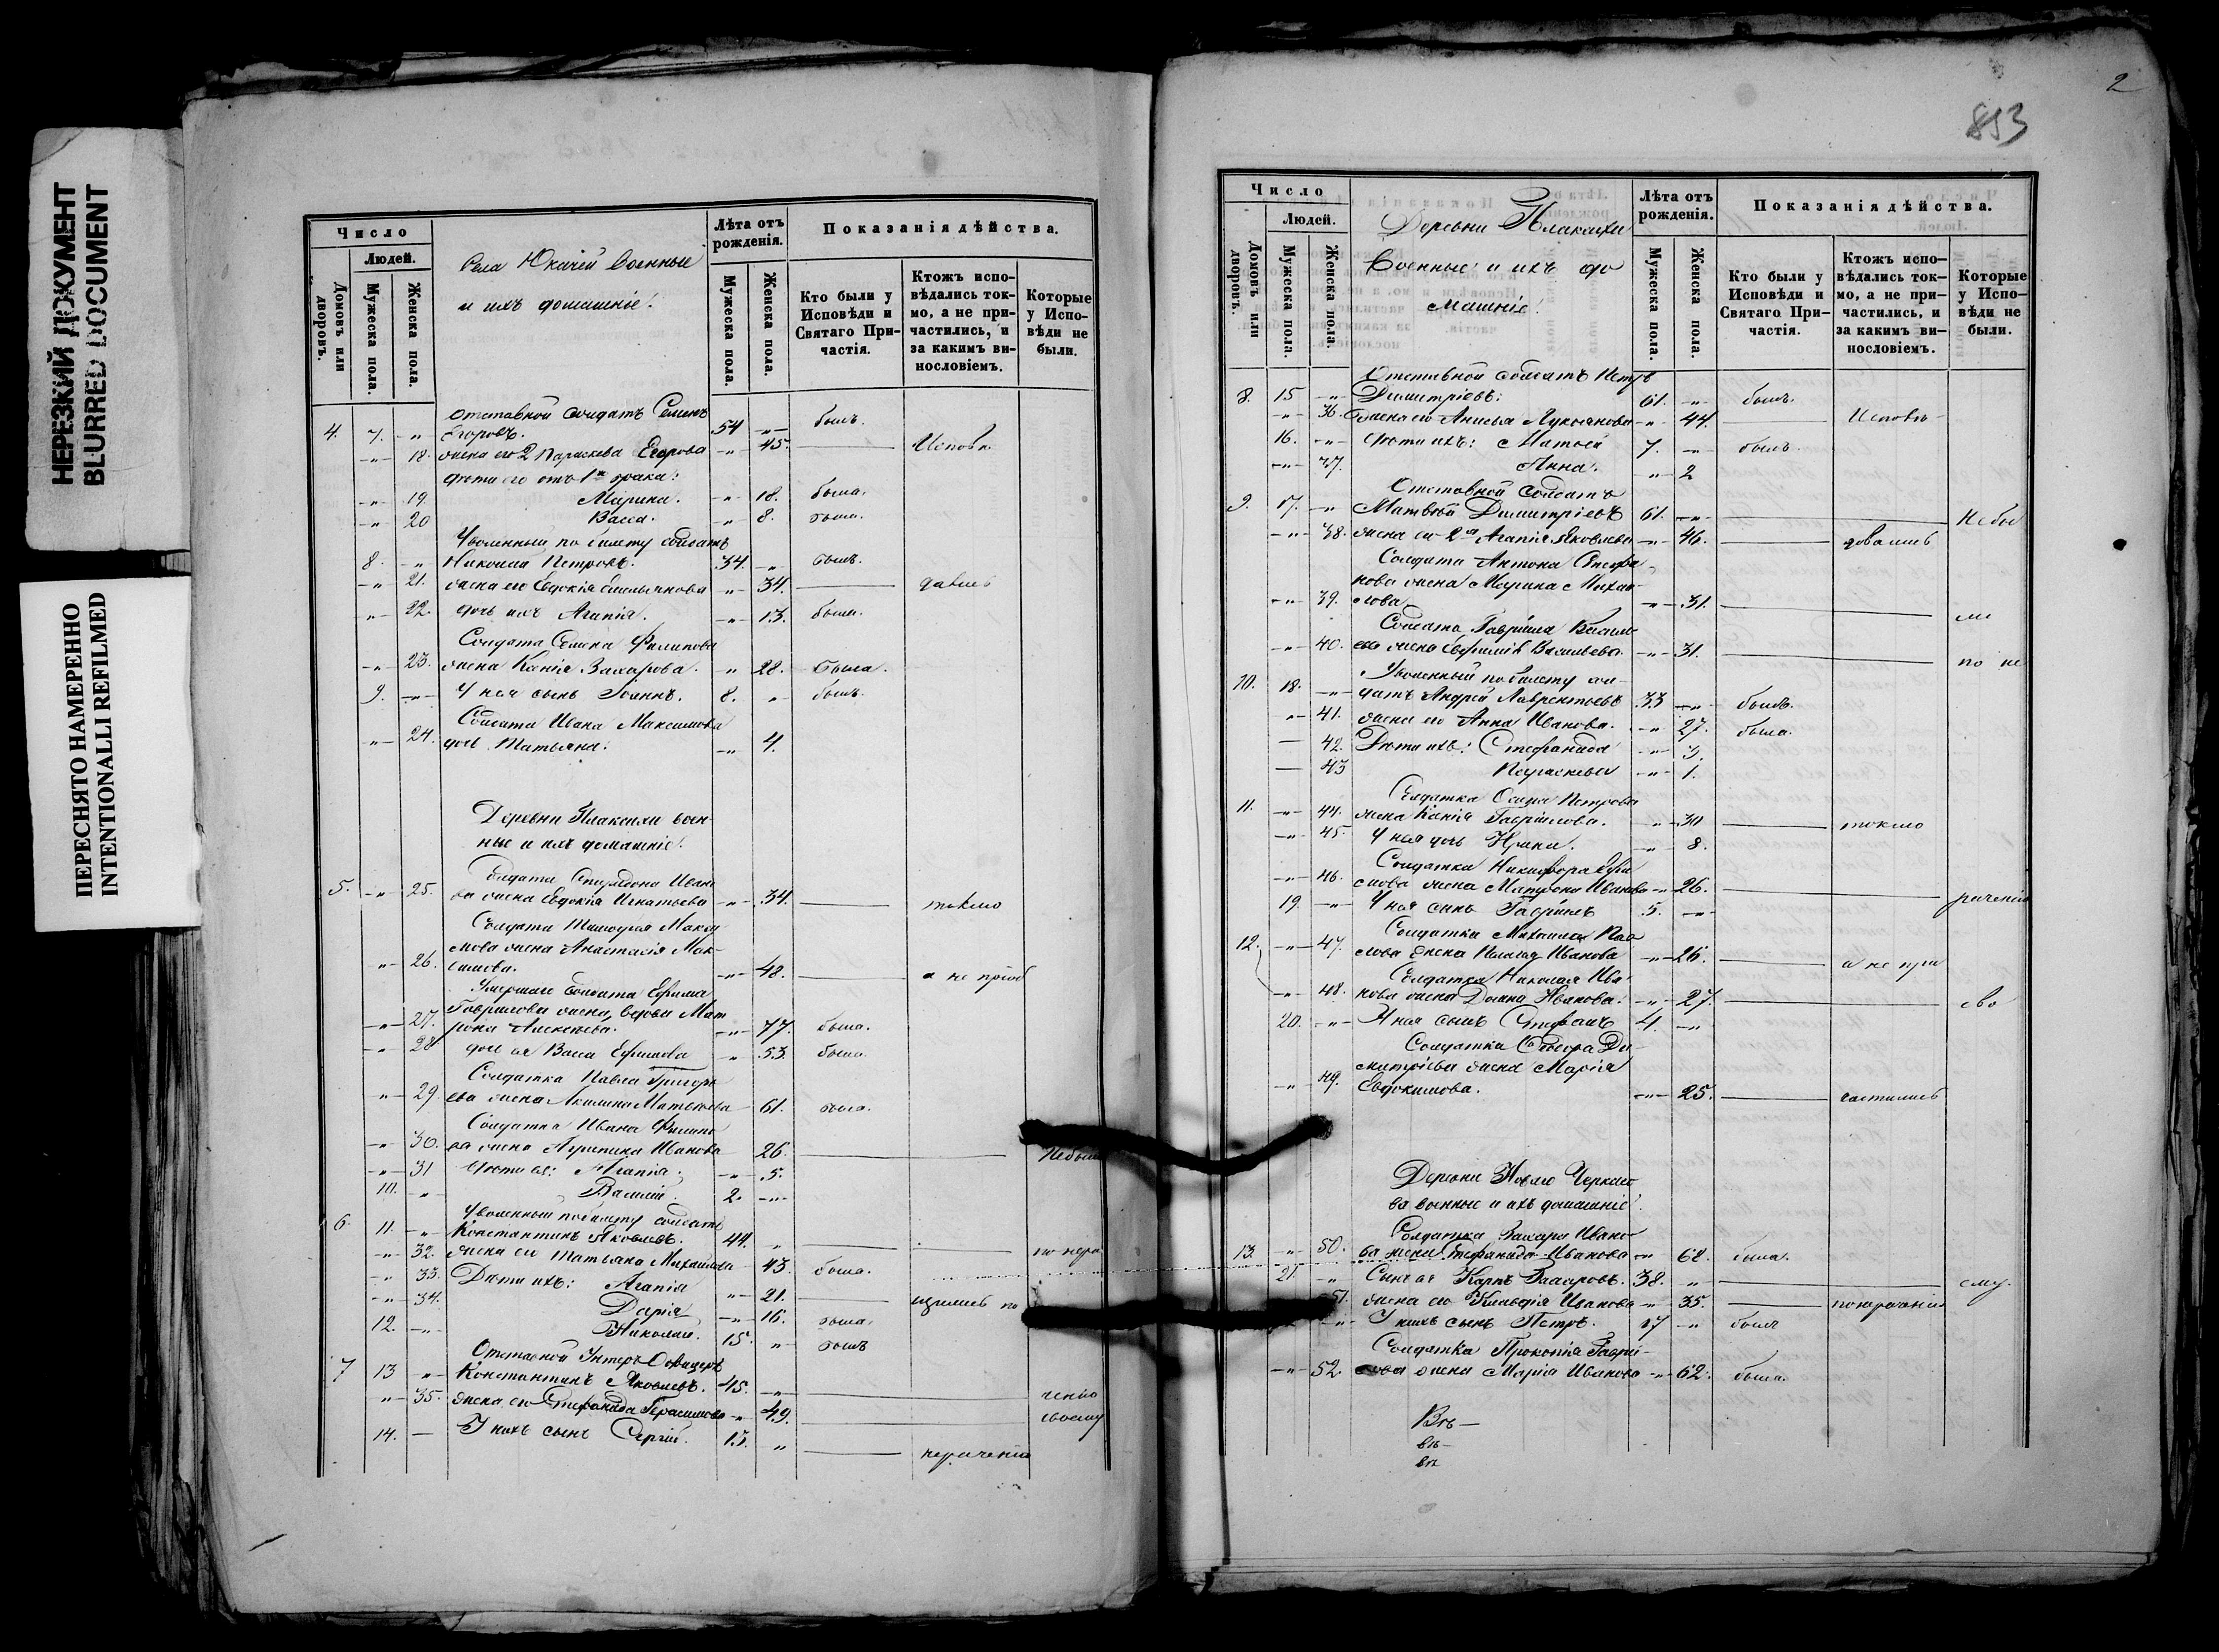 НЕРЕЗКИЙ ДОКУМЕНТ
BLURRED DOCUMENT
ПЕРЕСНЯТО НАМЕРЕННО
INTENTIONALLI REFILMED
Число
Людей.
Домовъ или дворовъ.
Мужеска пола.
Женска пола.
Села Юкачей военные
и ихъ домашніе.
Лѣта отъ рожденія.
Мужеска пола.
Женска пола.
Показанія дѣйства.
Кто были у Исповѣди и Святаго При-частія.
Ктожъ испо-вѣдались ток-мо, а не при-частились, и за какимъ ви-нословіемъ.
Которые у Испо-вѣди не были.
Отставной солдатъ Семенъ
4. 7. -"- Егоровъ. 54 -"- былъ.
-"- 18. жена его 2 Параскева Егорова -"- 45. Испове
дѣти его отъ 1го брака:
-"- 19. Марина. -"- 18. была.
-"- 20 Васса. -"- 8. была.
Уволенный по билету солдатъ
8. -"- Николай Петровъ. 34. -"- былъ.
-"- 21. жена его Евдокія Емельянова -"- 34. дались
-"- 22. дочь ихъ Агапія. -"- 13. была.
Солдата Семена Филипова
-"- 23. жена Ксенія Захарова. " 28. была.
9. -"- У нея сынъ Іоаннъ. 8. " былъ.
Солдата Ивана Максимова
-"- 24. дочь Татьяна. -"- 4.
Деревни Плаксихи воен-
ные и ихъ домашніе.
Солдата Спиридона Ивано
5. -"- 25. ва жена Евдокія Игнатьева -"- 34. токмо
Солдата Тимофея Макси
мова жена Анастасія Мак-
-"- 26. симова. -"- 48. а не пріоб
Умершаго солдата Ефима
Гаврилова жена, вдова Мат
-"- 27. рона Алексѣева. -"- 77. была.
-"- 28 дочь ея Васса Ефимова " 53. была.
Солдатка Павла Григорь
-"- 29. ева жена Акилина Матвѣева 61. была.
Солдатка Ивана Филипо
-"- 30. ва жена Агрипина Иванова 26. Небыли
-"- 31 Дѣти ея: Агапія. -"- 5.
10. -"- Василій. 2. -"-
Уволенный по билету солдатъ
6. 11. -"- Константинъ Яковлевъ. 44. " по нера
-"- 32. жена его Татьяна Михайлова 43. была.
-"- 33. Дѣти ихъ: Агапія "- 21. щились по
-"- 34. Дарія -"- 16. была.
12. -"- Николай. 15. " былъ
Отставной Унтеръ-Офицеръ
7 13 -"- Константинъ Яковлевъ. 45. -"- ченію
-"- 35. жена его Стефанида Герасимова -"- 49. своему
14. — У нихъ сынъ Сергій. 13. " нераченію
2
853
Число
Людей.
Домовъ или дворовъ.
Мужеска пола.
Женска пола.
Деревни Плаксихи
Военные и ихъ до
машніе.
Лѣта отъ рожденія.
Мужеска пола.
Женска пола.
Показанія дѣйства.
Кто были у Исповѣди и Святаго При-частія.
Ктожъ испо-вѣдались ток-мо, а не при-частились, и за какимъ ви-нословіемъ.
Которые у Испо-вѣди не были.
Отставной солдатъ Петръ
8. 15 -"- Димитріевъ. 61. -"- былъ.
-"- 36. жена его Анисья Лукьянова -"- 44. Исповѣ
16. -"- Дѣти ихъ: Матвей 7. -"- былъ.
-"- 37. Анна. -"- 2
Отставной солдатъ
9. 17. -"- Матвѣй Димитріевъ 61. -"- Небы
-"- 38. жена его 2я Агапія Яковлева -"- 46. довались
Солдата Антона Стефа
нова жена Марина Михай
-"- 39. лова. -"- 31. ли
Солдата Гавріила Василь
-"- 40. ева жена Ефимія Васильева -"- 31. по не
Уволенный по билету сол-
10. 18. -"- датъ Андрей Лаврентьевъ 33 -"- былъ.
-"- 41. жена его Анна Иванова. -"- 27. была.
— 42. Дѣти ихъ: Стефанида -"- 3.
— 43 Параскева -"- 1.
Солдатка Осипа Петрова
11. -"- 44. жена Ксенія Гаврилова. -"- 30 токмо
-"- 45. У нея дочь Ирина. -"- 8.
Солдатка Никифора Ефи
-"- 46. мова жена Матрена Иванова -"- 26. раченію
19. -"- У нея сынъ Гавріилъ 5. -"-
Солдатка Михаила Пав
12. -"- 47. лова жена Пелагія Иванова -"- 26. а не при
Солдатка Николая Ива
-"- 48. нова жена Домна Иванова. -"- 27. сво
20. -"- У нея сынъ Стефанъ 4. -"-
Солдатка Ди-
митріева жена Марія
-"- 49. Евдокимова. -"- 25. частились
Деревни Черкасо
ва военные и ихъ домашніе.
Солдатка Захара Ивано
13. -"- 50. ва жена Стефанида Иванова -"- 68. была.
21. -"- Сынъ ея Карпъ Захаровъ. 38. -"- ему.
51. жена его Клавдія Иванова -"- 35. по нераченію
-"- У нихъ сынъ Петръ. 17 -"- былъ
Солдатка Прокопія Гаври-
-"- 52. лова жена Марія Иванова -"- 62. была.